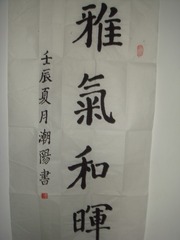 雅氣和暉
壬辰夏月潮陽書